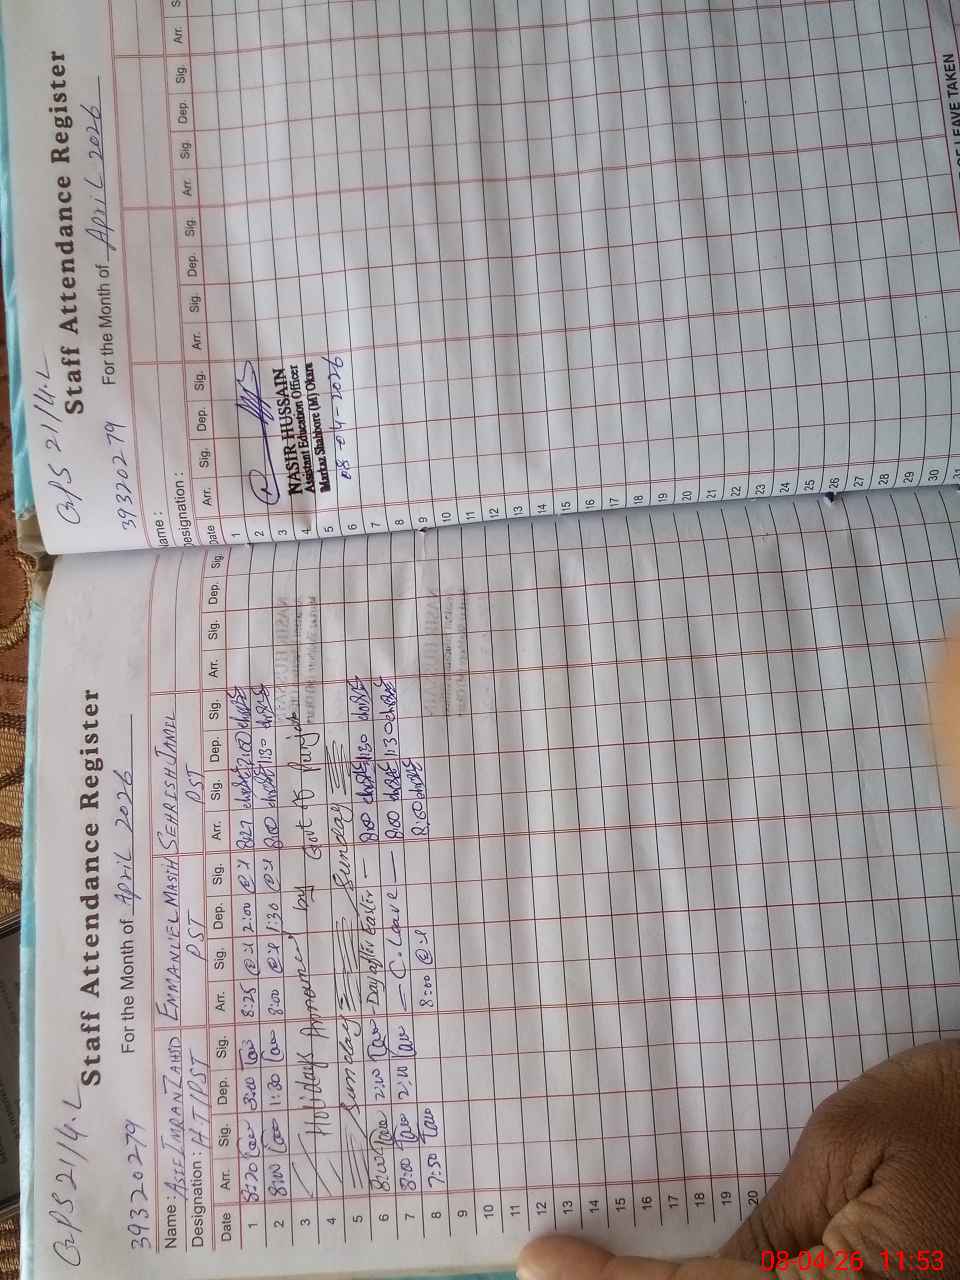 GPS 21/4.L
Staff Attendance Register
39320279 For the Month of April 2026
Name : ASIF IMRAN ZAHID EMMANUEL MASIH SEHRESH JAMEL
Designation : HT/PST PST PST
Date Arr. Sig. Dep. Sig. Arr. Sig. Dep. Sig. Arr. Sig. Dep. Sig. Arr. Sig. Dep. Sig.
1 8:20 8:25 2:00 8:27 2:00
2 8:00 1:30 8:00 1:30 8:00 1:30
3 Holidays Announced by Govt of Punjab
4
5 Sunday Sunday
6 8:00 2:00 - Day after Easter - 8:00 1:30
7 8:00 2:00 - C. Leave - 8:00 1:30
8 7:50 8:00 8:00
9
10
11
12
13
14
15
16
17
18
19
20
GPS 21/4.L
Staff Attendance Register
39320279 For the Month of April 2026
Name :
Designation :
Date Arr. Sig. Dep. Sig. Arr. Sig. Dep. Sig. Arr. Sig. Dep. Sig. Arr.
1
2
3
4
5
6
7
8
9
10
11
12
13
14
15
16
17
18
19
20
21
22
23
24
25
26
27
28
29
30
31
NASIR HUSSAIN
Assistant Education Officer
Markaz Shahbore (M) Okara
08-04-2026
OF LEAVE TAKEN
08-04-26 11:53